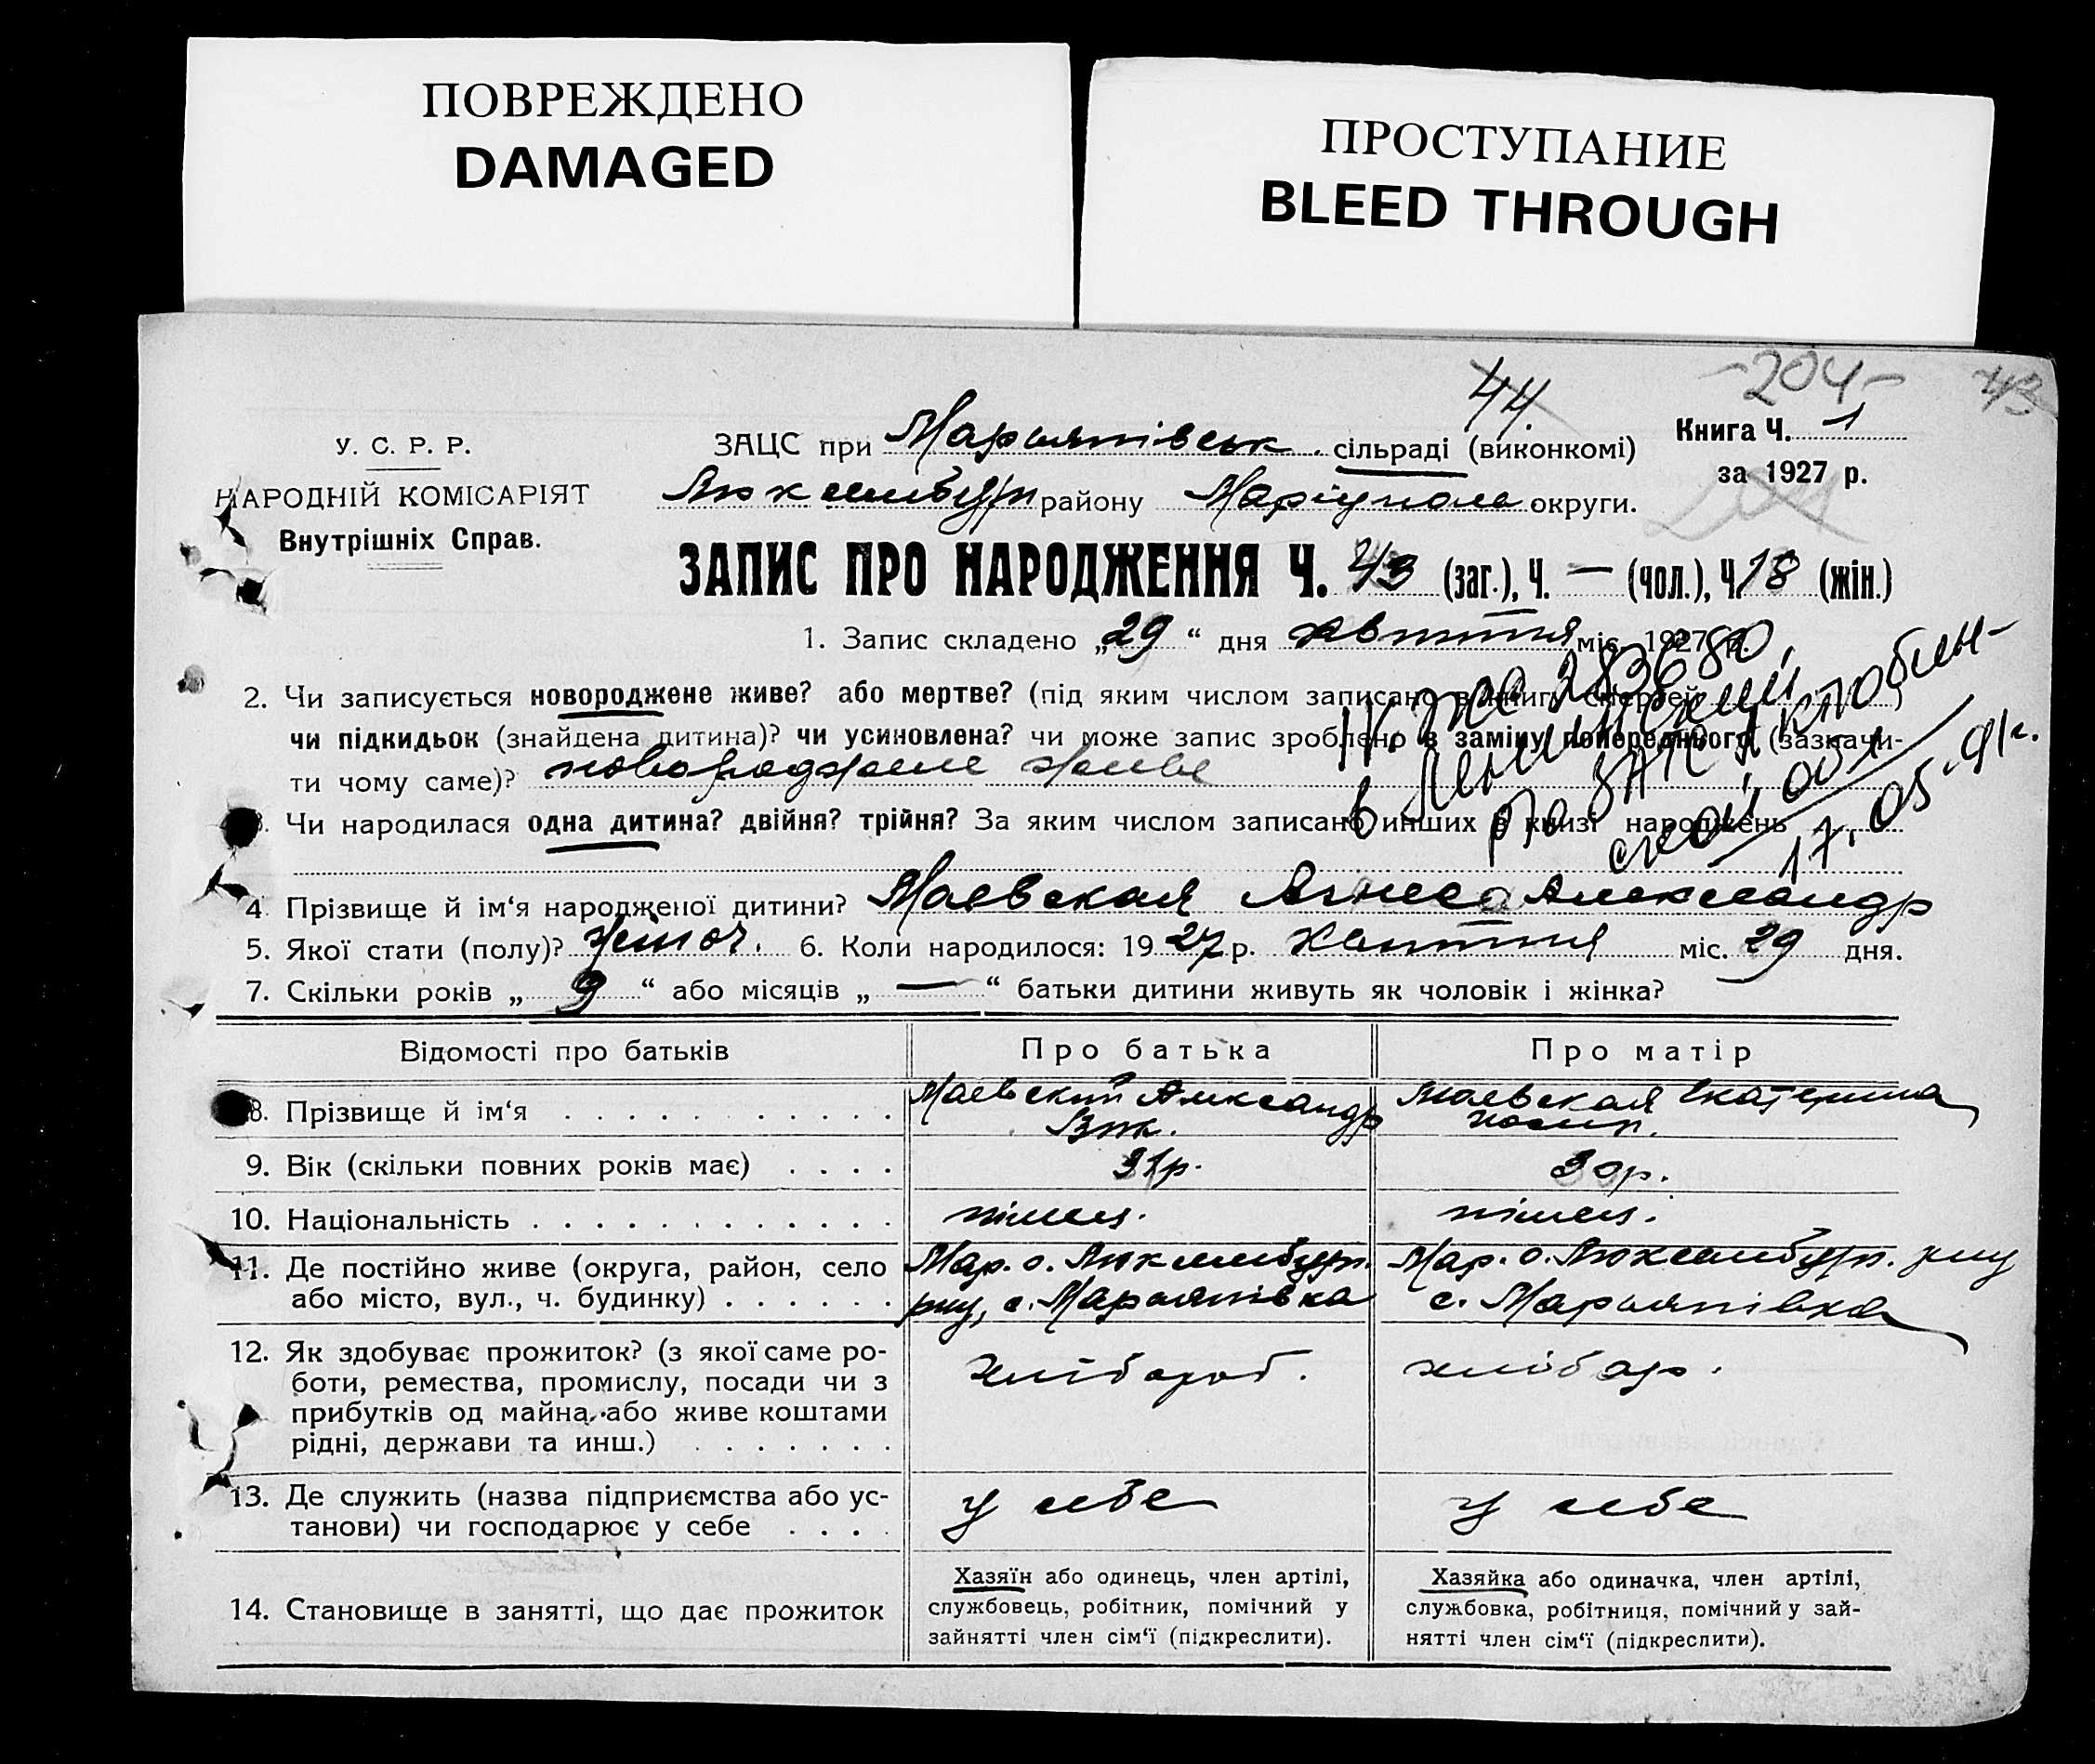 ПОВРЕЖДЕНО
DAMAGED
ПРОСТУПАНИЕ
BLEED THROUGH
44.
-204-
43
У. С. Р. Р.
НАРОДНІЙ КОМІСАРІЯТ
Внутрішніх Справ.
ЗАЦС при Марьянівськ. сільраді (виконкомі)
Люксембург району Маріупол. округи.
Книга Ч. 1
за 1927 р.
ЗАПИС ПРО НАРОДЖЕННЯ Ч. 43 (заг.), Ч. — (чол.), Ч. 18 (жін.)
1. Запис складено „29“ дня квітня міс. 1927 р.
2. Чи записується новороджене живе? або мертве? (під яким числом записано в книзі смертей )
чи підкидьок (знайдена дитина)? чи усиновлена? чи може запис зроблено в заміну попереднього (зазначи-
ти чому саме)? новороджене живе
3. Чи народилася одна дитина? двійня? трійня? За яким числом записано инших в книзі народжень
4. Прізвище й ім‘я народженої дитини? Маевская Агнеса Александр
5. Якої стати (полу)? жіноч. 6. Коли народилося: 1927 р. квітня міс. 29 дня.
7. Скільки років „ 9 “ або місяців „ — “ батьки дитини живуть як чоловік і жінка?
в Ленинский
17.05.91г.
Відомості про батьків
Про батька
Про матір
8. Прізвище й ім‘я
Маевский Александр
Маевская Екатерина
9. Вік (скільки повних років має)
31р.
30р.
10. Національність
німец.
німец.
11. Де постійно живе (округа, район, село
або місто, вул., ч. будинку)
Мар. о. Люксембург.
р-ну, с. Марьянівка
Мар. о. Люксембург. р-ну
с. Марьянівка
12. Як здобуває прожиток? (з якої саме ро-
боти, ремества, промислу, посади чи з
прибутків од майна, або живе коштами
рідні, держави та инш.)
Хлібороб.
хлібор.
13. Де служить (назва підприємства або ус-
танови) чи господарює у себе
у себе
у себе
14. Становище в занятті, що дає прожиток
Хазяїн або одинець, член артілі,
службовець, робітник, помічний у
зайнятті член сім‘ї (підкреслити).
Хазяйка або одиначка, член артілі,
службовка, робітниця, помічний у зай-
нятті член сім‘ї (підкреслити).